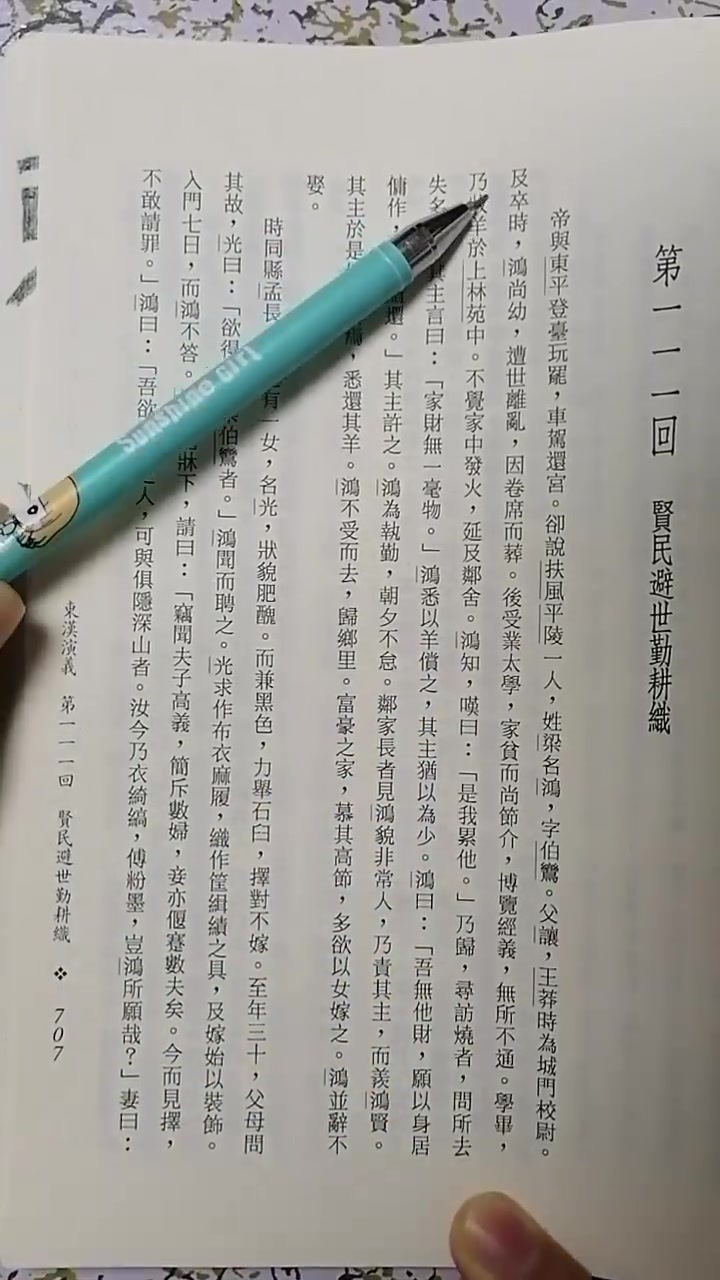 第一一一回 賢民避世勤耕織
帝與東平登臺玩罷，車駕還宮。卻說扶風平陵一人，姓梁名鴻，字伯鸞。父讓，王莽時為城門校尉。
及卒時，鴻尚幼，遭世離亂，因卷席而葬。後受業太學，家貧而尚節介，博覽經義，無所不通。學畢，
乃牧羊於上林苑中。不覺家中發火，延及鄰舍。鴻知，嘆曰：「是我累他。」乃歸，尋訪燒者，問所去
失名其主言曰：「家財無一毫物。」鴻悉以羊償之，其主猶以為少。鴻曰：「吾無他財，願以身居
傭作，還。」其主許之。鴻為執勤，朝夕不怠。鄰家長者見鴻貌非常人，乃責其主，而羨鴻賢。
其主於是，悉還其羊。鴻不受而去，歸鄉里。富豪之家，慕其高節，多欲以女嫁之。鴻並辭不
娶。
時同縣孟長有一女，名光，狀貌肥醜。而兼黑色，力舉石臼，擇對不嫁。至年三十，父母問
其故，光曰：「欲得伯鸞者。」鴻聞而聘之。光求作布衣麻履，織作筐緝績之具，及嫁始以裝飾。
入門七日，而鴻不答。牀下，請曰：「竊聞夫子高義，簡斥數婦，妾亦偃蹇數夫矣。今而見擇，
不敢請罪。」鴻曰：「吾欲人，可與俱隱深山者。汝今乃衣綺縞，傅粉墨，豈鴻所願哉？」妻曰：
東漢演義 第一一一回 賢民避世勤耕織 ❖ 707
Sunshine Girl